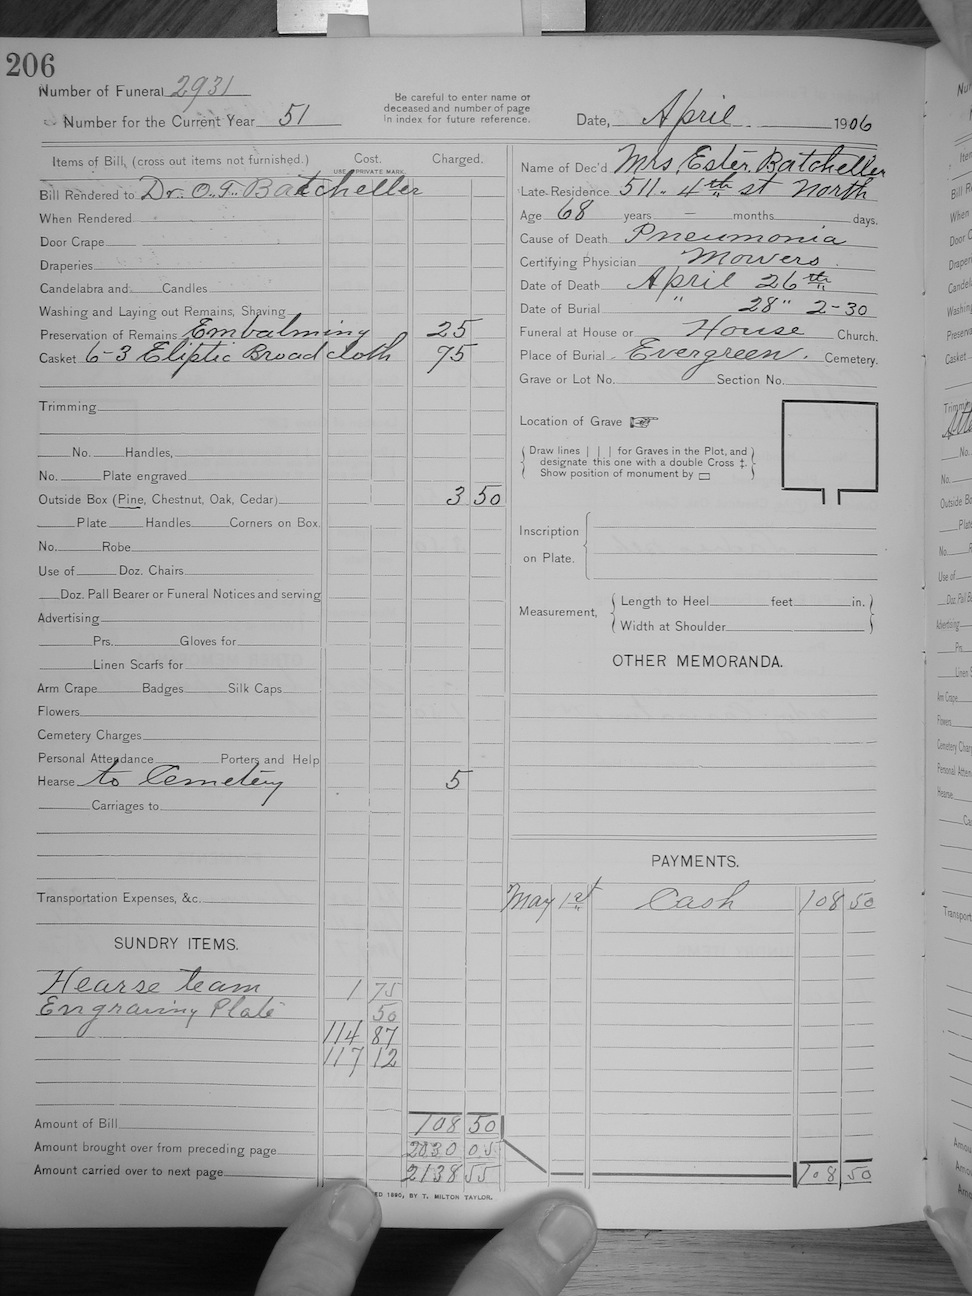 206
Number of Funeral 2931
Number for the Current Year 51
Be careful to enter name of
deceased and number of page
in index for future reference.
Date, April 1906
Items of Bill, (cross out items not furnished.) Cost. Charged.
USE PRIVATE MARK.
Bill Rendered to Dr. O. F. Batcheller
When Rendered
Door Crape
Draperies
Candelabra and Candles
Washing and Laying out Remains, Shaving
Preservation of Remains Embalming 25
Casket 6-3 Eliptic Broadcloth 75
Trimming
No. Handles,
No. Plate engraved
Outside Box (Pine, Chestnut, Oak, Cedar) 3 50
Plate Handles Corners on Box.
No. Robe
Use of Doz. Chairs
Doz. Pall Bearer or Funeral Notices and serving
Advertising
Prs. Gloves for
Linen Scarfs for
Arm Crape Badges Silk Caps
Flowers
Cemetery Charges
Personal Attendance Porters and Help
Hearse to Cemetery 5
Carriages to
Transportation Expenses, &c.
SUNDRY ITEMS.
Hearse team 1 75
Engraving Plate 50
114 87
117 12
Amount of Bill 108 50
Amount brought over from preceding page 2030 05
Amount carried over to next page 2138 55
ED 1890, BY T. MILTON TAYLOR.
Name of Dec'd Mrs Ester Batcheller
Late Residence 511. 4th st North
Age 68 years – months days.
Cause of Death Pneumonia
Certifying Physician Mowers
Date of Death April 26th
Date of Burial " 28" 2-30
Funeral at House or House Church.
Place of Burial Evergreen. Cemetery.
Grave or Lot No. Section No.
Location of Grave
Draw lines | | | for Graves in the Plot, and
designate this one with a double Cross ‡.
Show position of monument by ▭
Inscription
on Plate.
Measurement,
Length to Heel feet in.
Width at Shoulder
OTHER MEMORANDA.
PAYMENTS.
May 1st Cash 108 50
108 50